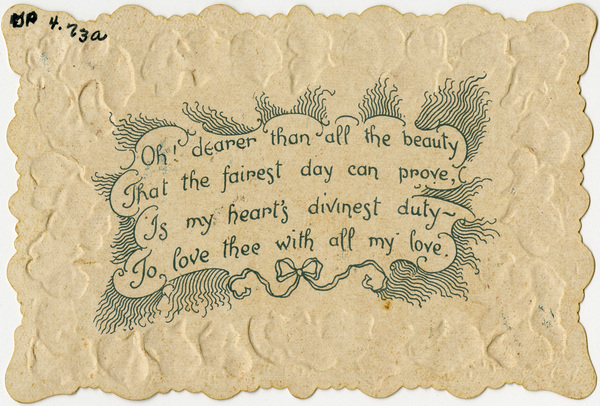 4.73a
Oh! dearer than all the beauty
That the fairest day can prove,
Is my heart's divinest duty~
To love thee with all my love.